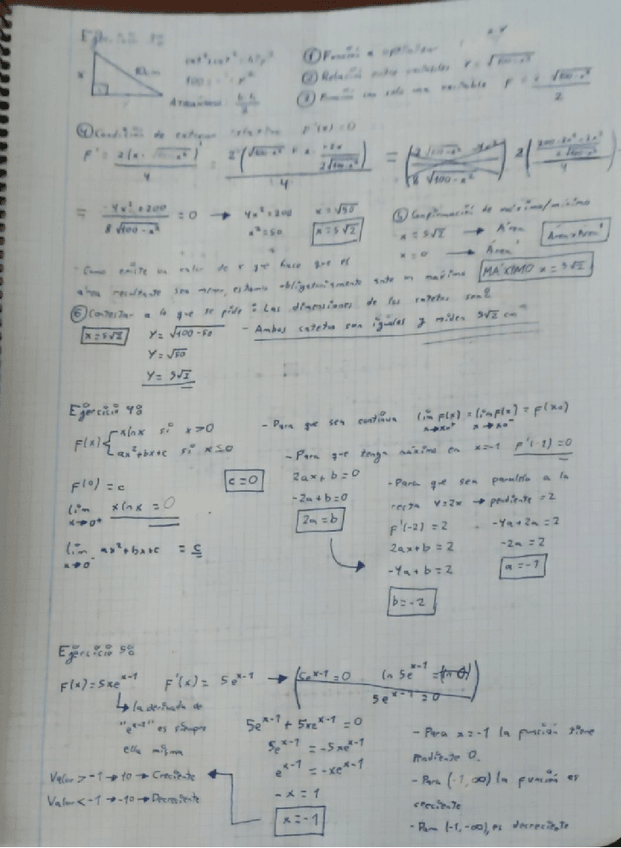 x
10cm
100 =
Área
① Función a optimizar
② Relación entre variables Y = √100-x²
③ Función con solo una variable F = x √100-x² / 2
④ Condición de extremo relativo F'(x) = 0
= -4x² + 200 / 8√100-x² = 0 → 4x² = 200 x = √50
x² = 50 x = 5√2
⑤ Confirmación de máximo/mínimo
x = 5√2 → Área
x = 0 → Área'
- Como existe un valor de x que hace que el
área resultante sea menor, estamos obligatoriamente ante un máximo
MÁXIMO x = 5√2
⑥ Contestar a lo que se pide: Las dimensiones de los catetos son?
x = 5√2 Y = √100-50 - Ambos catetos son iguales y miden 5√2 cm
Y = √50
Y = 5√2
Ejercicio 4º
F(x) { xlnx si x>0
ax²+bx+c si x≤0
F(0) = c
c = 0
lim x→0⁺ xlnx = 0
lim x→0⁻ ax²+bx+c = c
- Para que sea continua lim F(x) = lim F(x) = F(x₀)
x→x₀⁺ x→x₀⁻
- Para que tenga máximo en x=-1 F'(-1) = 0
2ax + b = 0
-2a + b = 0
2a = b
- Para que sea paralela a la
recta Y=2x → pendiente = 2
F'(-2) = 2 -4a + 2a = 2
2ax + b = 2 -2a = 2
-4a + b = 2 a = -1
b = -2
Ejercicio 5º
F(x) = 5xe^x-1 F'(x) = 5e^x-1 → 5e^x-1 = 0 ln 5e^x-1 = ln 0
5e^x-1 = 0
↳ la derivada de
"e^x-1" es siempre
ella misma
5e^x-1 + 5xe^x-1 = 0
5e^x-1 = -5xe^x-1
e^x-1 = -xe^x-1
-x = 1
x = -1
Valor > -1 → 10 → Creciente
Valor < -1 → -10 → Decreciente
- Para x=-1 la función tiene
pendiente 0.
- Para (-1, ∞) la función es
creciente
- Para (-1, -∞), es decreciente